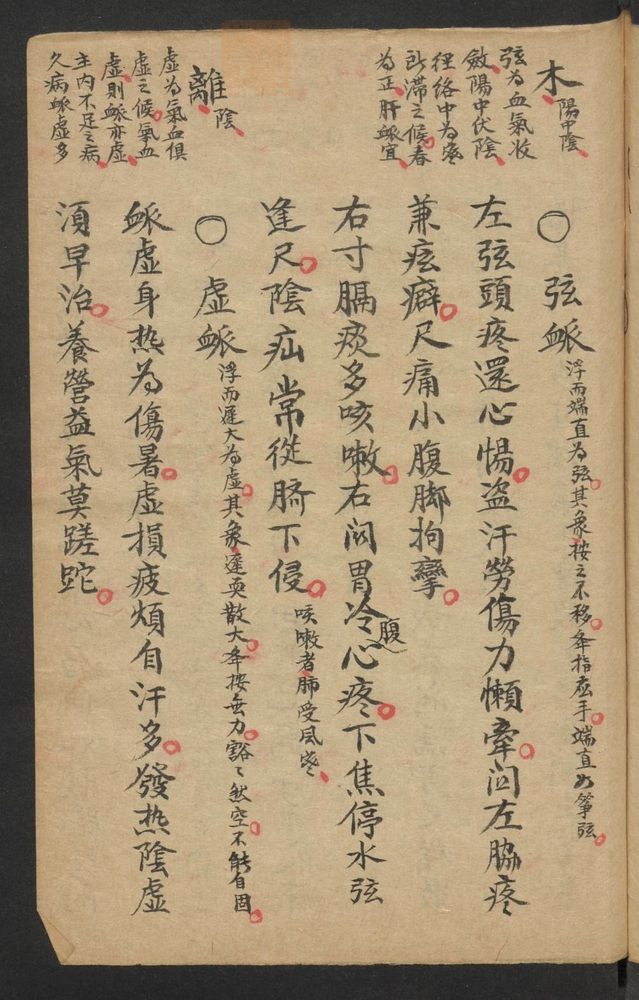 木 陽中陰
弦為血氣收
斂陽中伏陰
經絡中為寒
所滯之候春
為正肝脈宜
○ 弦脈 浮而端直為弦其象按之不移舉指應手端直如箏弦
左弦頭疼還心惕盜汗勞傷力懶牽関左脇疼
兼痃癖尺痛小腹脚拘攣
右寸膈痰多咳嗽右関胃冷心腹疼下焦停水弦
逢尺陰疝常從臍下侵 咳嗽者肺受風寒
離 陰
虛為氣血俱
虛之候氣血
虛則脈亦虛
主內不足之病
久病脈虛多
○ 虛脈 浮而遲大為虛其象遲耎散大舉按無力豁〻然空不能自固
脈虛身熱為傷暑虛損疲煩自汗多發熱陰虛
須早治養營益氣莫蹉跎